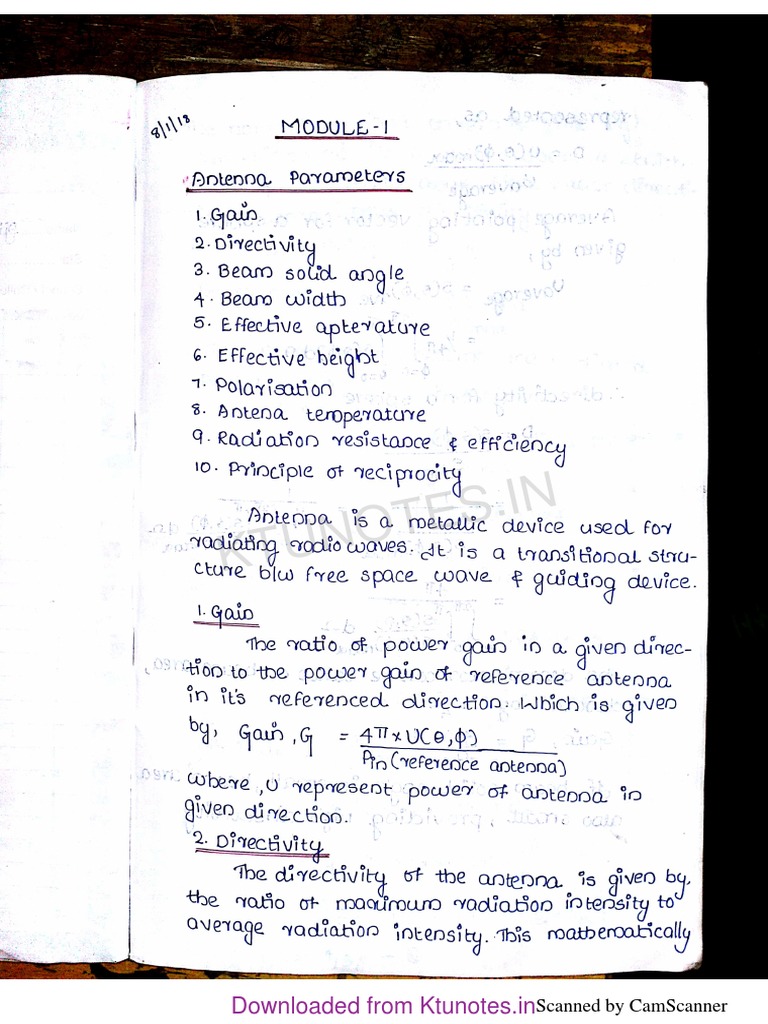 8/1/18
MODULE-1
Antenna Parameters
1. Gain
2. Directivity
3. Beam solid angle
4. Beam width
5. Effective apterature
6. Effective height
7. Polarisation
8. Antena temperature
9. Radiation resistance & efficiency
10. Principle of reciprocity
KTUNOTES.IN
Antenna is a metallic device used for
radiating radio waves. It is a transitional stru-
cture b/w free space wave & guiding device.
1. Gain
The ratio of power gain in a given direc-
tion to the power gain of reference antenna
in it's referenced direction. Which is given
by, Gain, G = 4π x U(θ, φ)
Pin (reference antenna)
where, U represent power of antenna in
given direction.
2. Directivity
The directivity of the antenna is given by,
the ratio of maximum radiation intensity to
average radiation intensity. This mathematically
Downloaded from Ktunotes.in Scanned by CamScanner